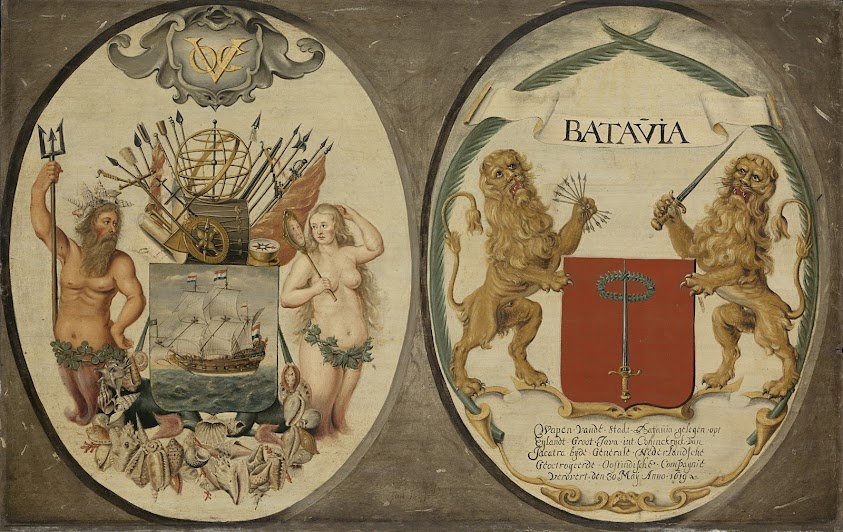 VOC
BATAVIA
Wapen vande Stadt Batavia gelegen opt
Eylandt Groot Java int Coninckryck van
Jacatra byde Generale Nederlandsche
Geoctroyeerde Oostindische Compagnie
Verovert den 30 May Anno 1619